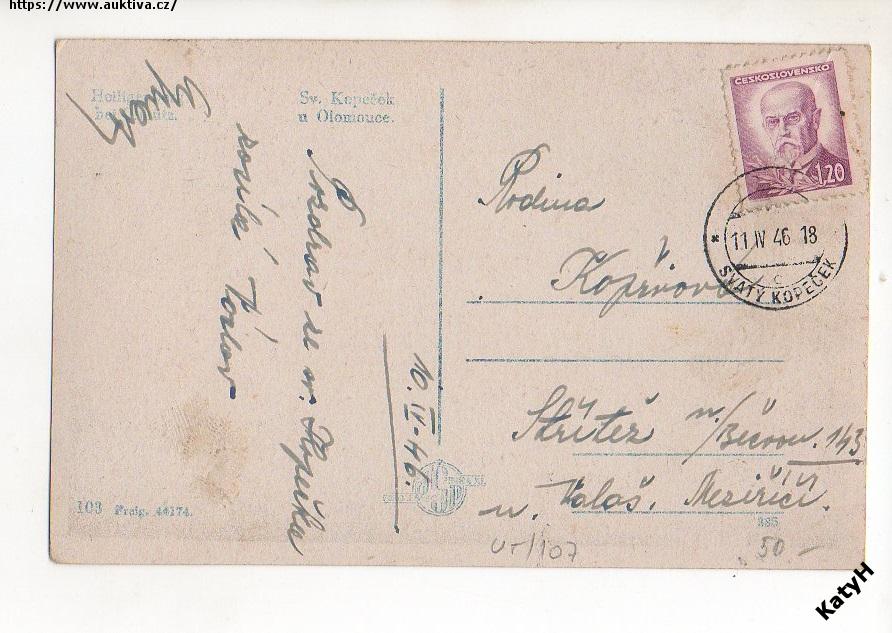 https://www.auktiva.cz/
Heilige
bei
Sv. Kopeček
u Olomouce.
ČESKOSLOVENSKO
1,20
11 IV 46 18
C
SVATÝ KOPEČEK
Pozdrav ze sv. Kopečka
10. IV - 46.
Rodina
Kopřivova
Střítež n/Bečvou. 143
u. Valaš. Meziříčí.
108 Freig. 44174.
385
50 -
KatyH